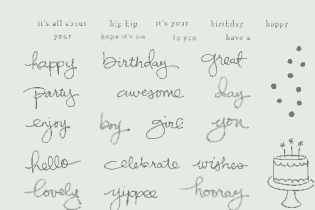 it's all about hip hip it's your birthday happy
your hope it's as to you have a
happy birthday great
party awesome day
enjoy boy girl you
hello celebrate wishes
lovely yippee hooray